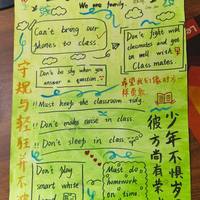 We are family.
Can't bring our
phones to class.
Don't fight with
classmates and get
on well with
Classmates.
Don't be shy when
you answer a
question.
希望我们像对方一
样勇敢
!! Must keep the classroom tidy.
!! Don't make noise in class.
!! Don't sleep in class.
Don't play
smart whose
Must do
homework
on time
守规与轻狂并不
少年不惧岁
彼方尚有荣